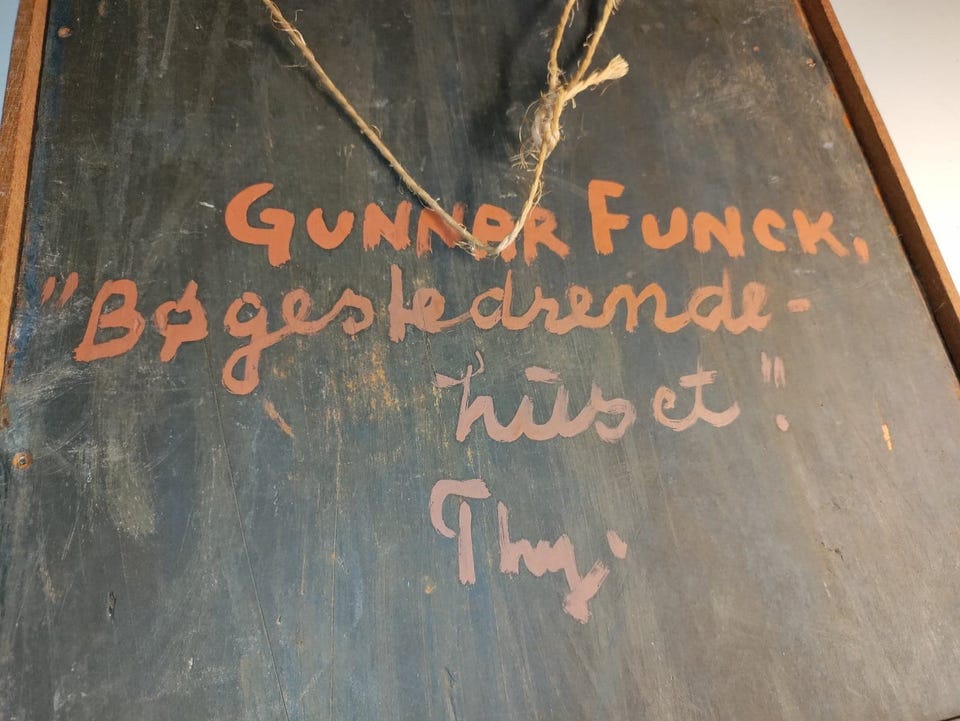 GUNNAR FUNCK,
"Bøgestedrende-
huset".
Thy.